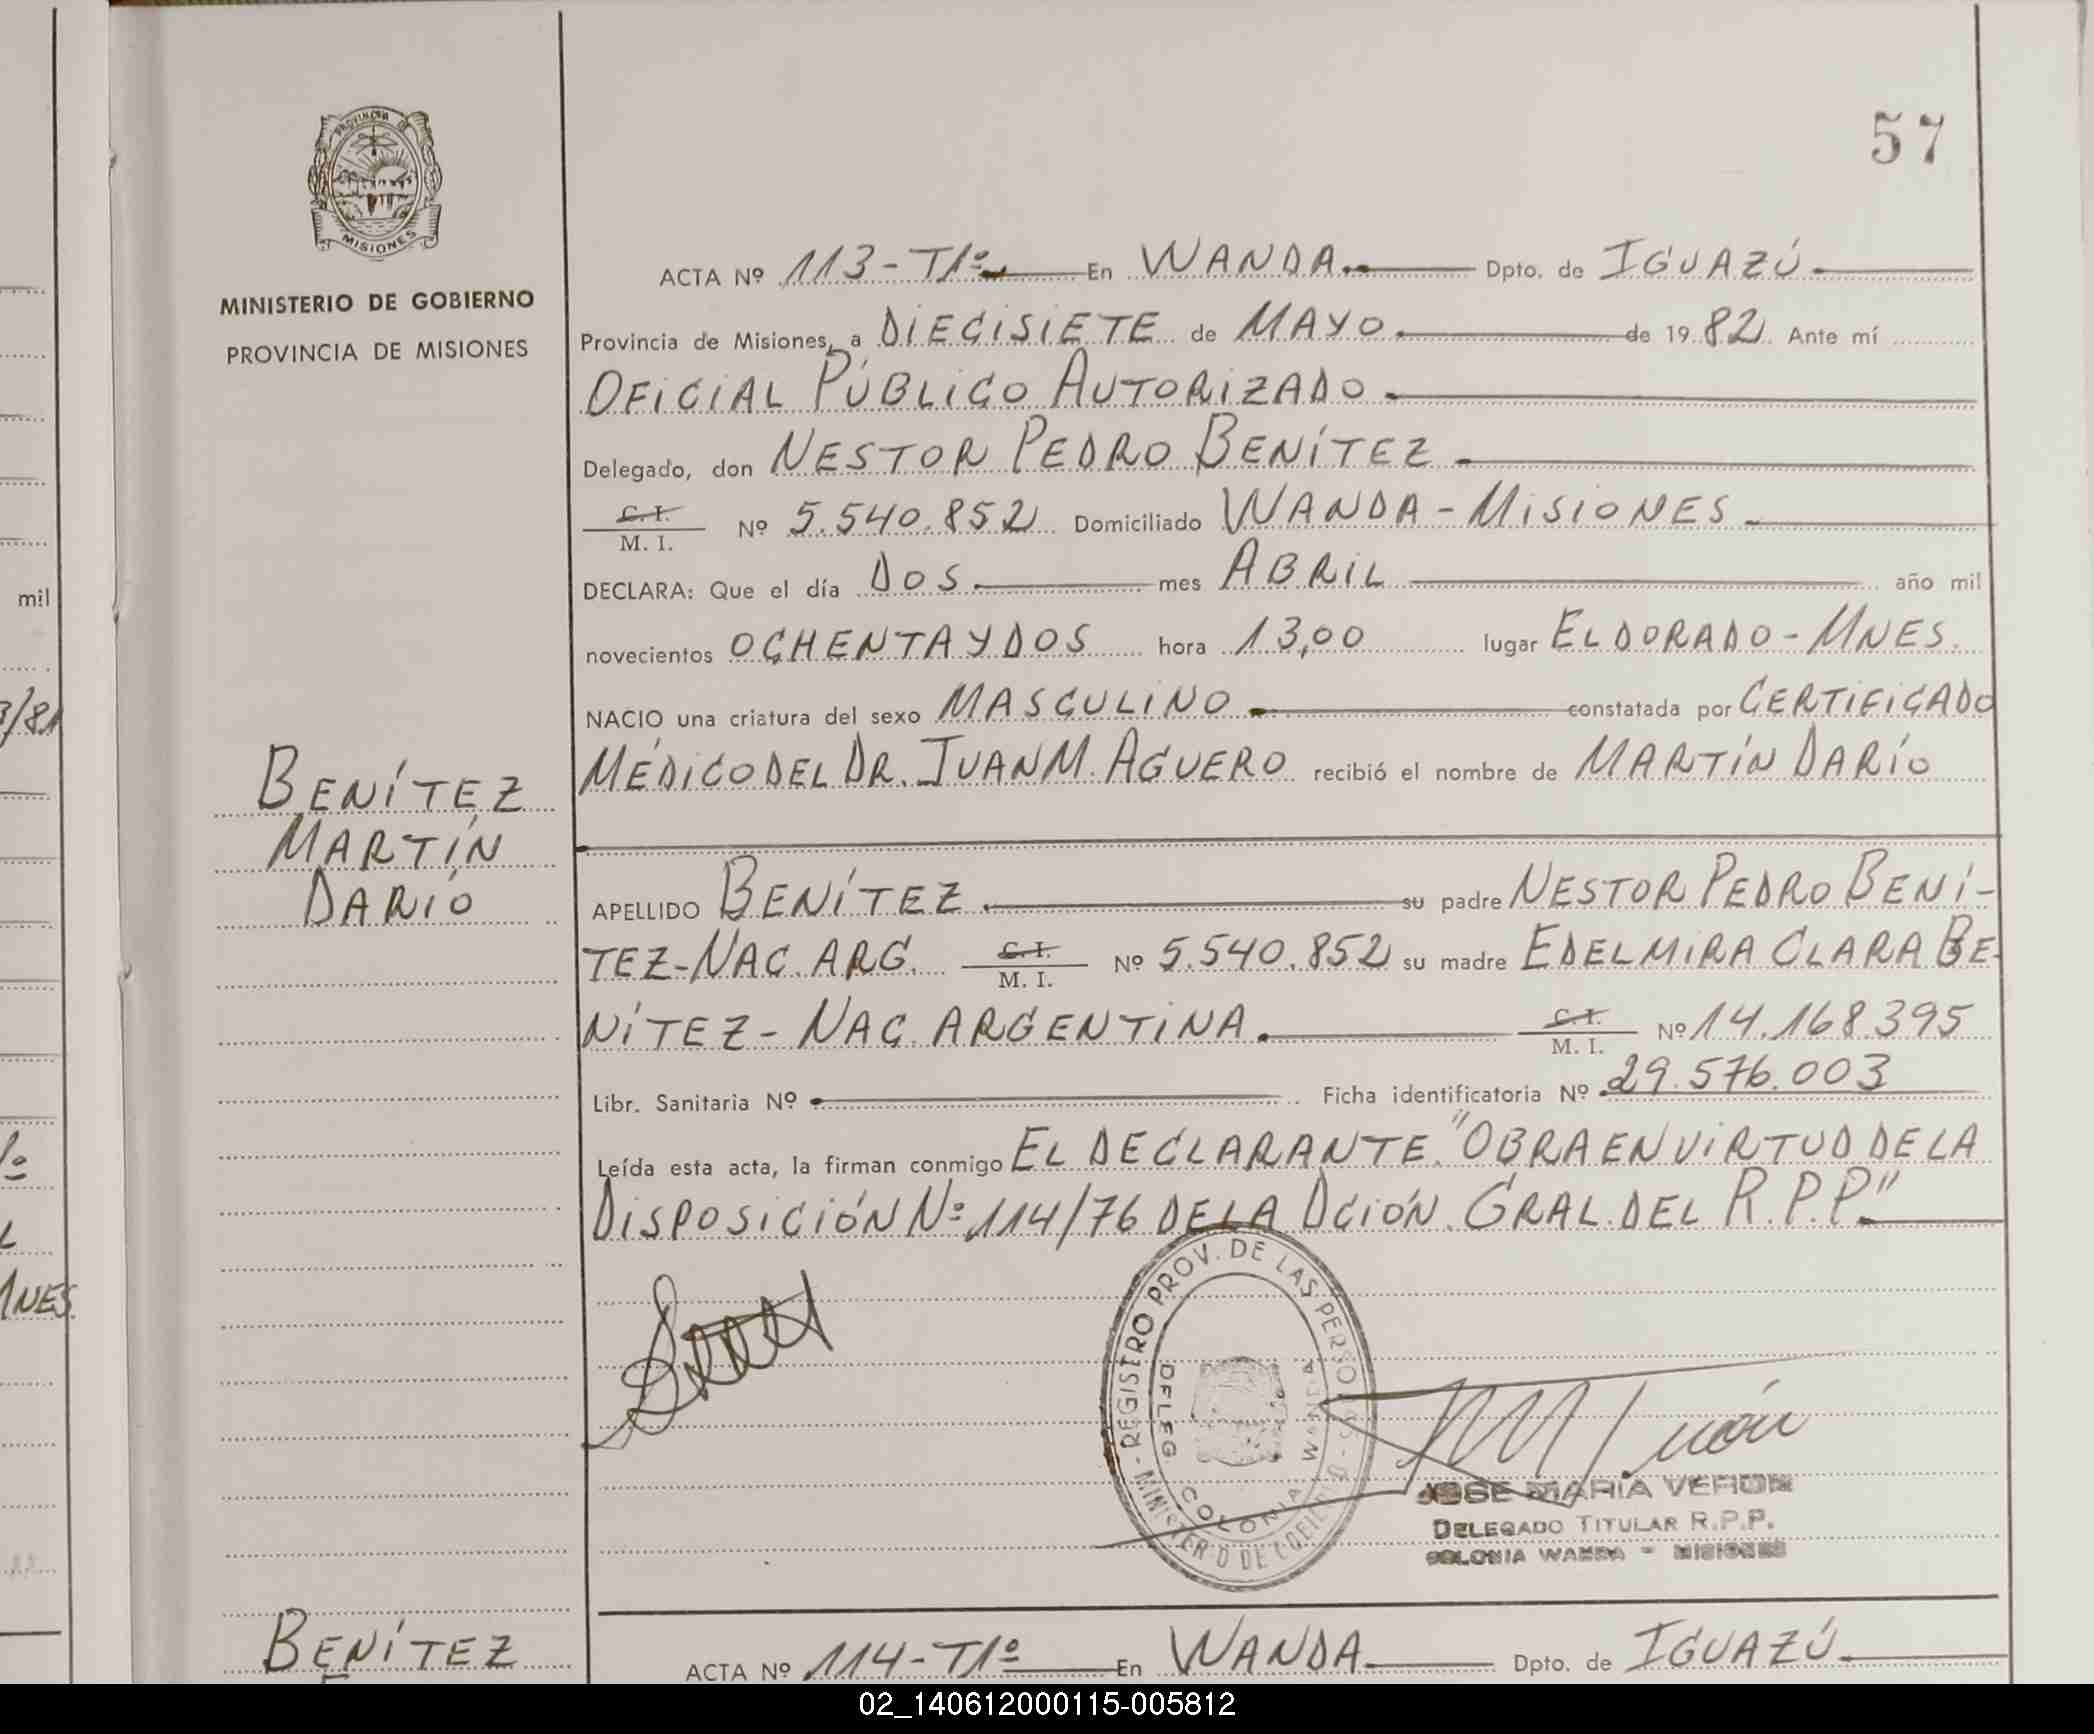 57
PROVINCIA DE
MISIONES
MINISTERIO DE GOBIERNO
PROVINCIA DE MISIONES
ACTA Nº 113-T1º En WANDA. Dpto. de IGUAZÚ
Provincia de Misiones, a DIECISIETE de MAYO. de 1982 Ante mí
OFICIAL PÚBLICO AUTORIZADO
Delegado, don NESTOR PEDRO BENÍTEZ
C. I.
M. I. Nº 5.540.852 Domiciliado WANDA-MISIONES
DECLARA: Que el día DOS mes ABRIL año mil
novecientos OCHENTA Y DOS hora 13,00 lugar ELDORADO-MNES.
NACIO una criatura del sexo MASCULINO constatada por CERTIFICADO
MÉDICO DEL DR. JUAN M. AGUERO recibió el nombre de MARTÍN DARÍO
BENÍTEZ
MARTÍN
DARÍO
APELLIDO BENÍTEZ su padre NESTOR PEDRO BENÍ-
TEZ-NAC. ARG. C. I.
M. I. Nº 5.540.852 su madre EDELMIRA CLARA BE-
NÍTEZ-NAC. ARGENTINA. C. I.
M. I. Nº 14.168.395
Libr. Sanitaria Nº Ficha identificatoria Nº 29.576.003
Leída esta acta, la firman conmigo EL DECLARANTE. "OBRA EN VIRTUD DE LA
DISPOSICIÓN Nº 114/76 DE LA DCIÓN. GRAL. DEL R.P.P."
REGISTRO PROV. DE LAS PERSO
COLONIA WANDA
JOSE MARIA VERON
DELEGADO TITULAR R.P.P.
COLONIA WANDA - MISIONES
BENÍTEZ
ACTA Nº 114-T1º En WANDA Dpto. de IGUAZÚ
mil
/81
MNES.
02_140612000115-005812